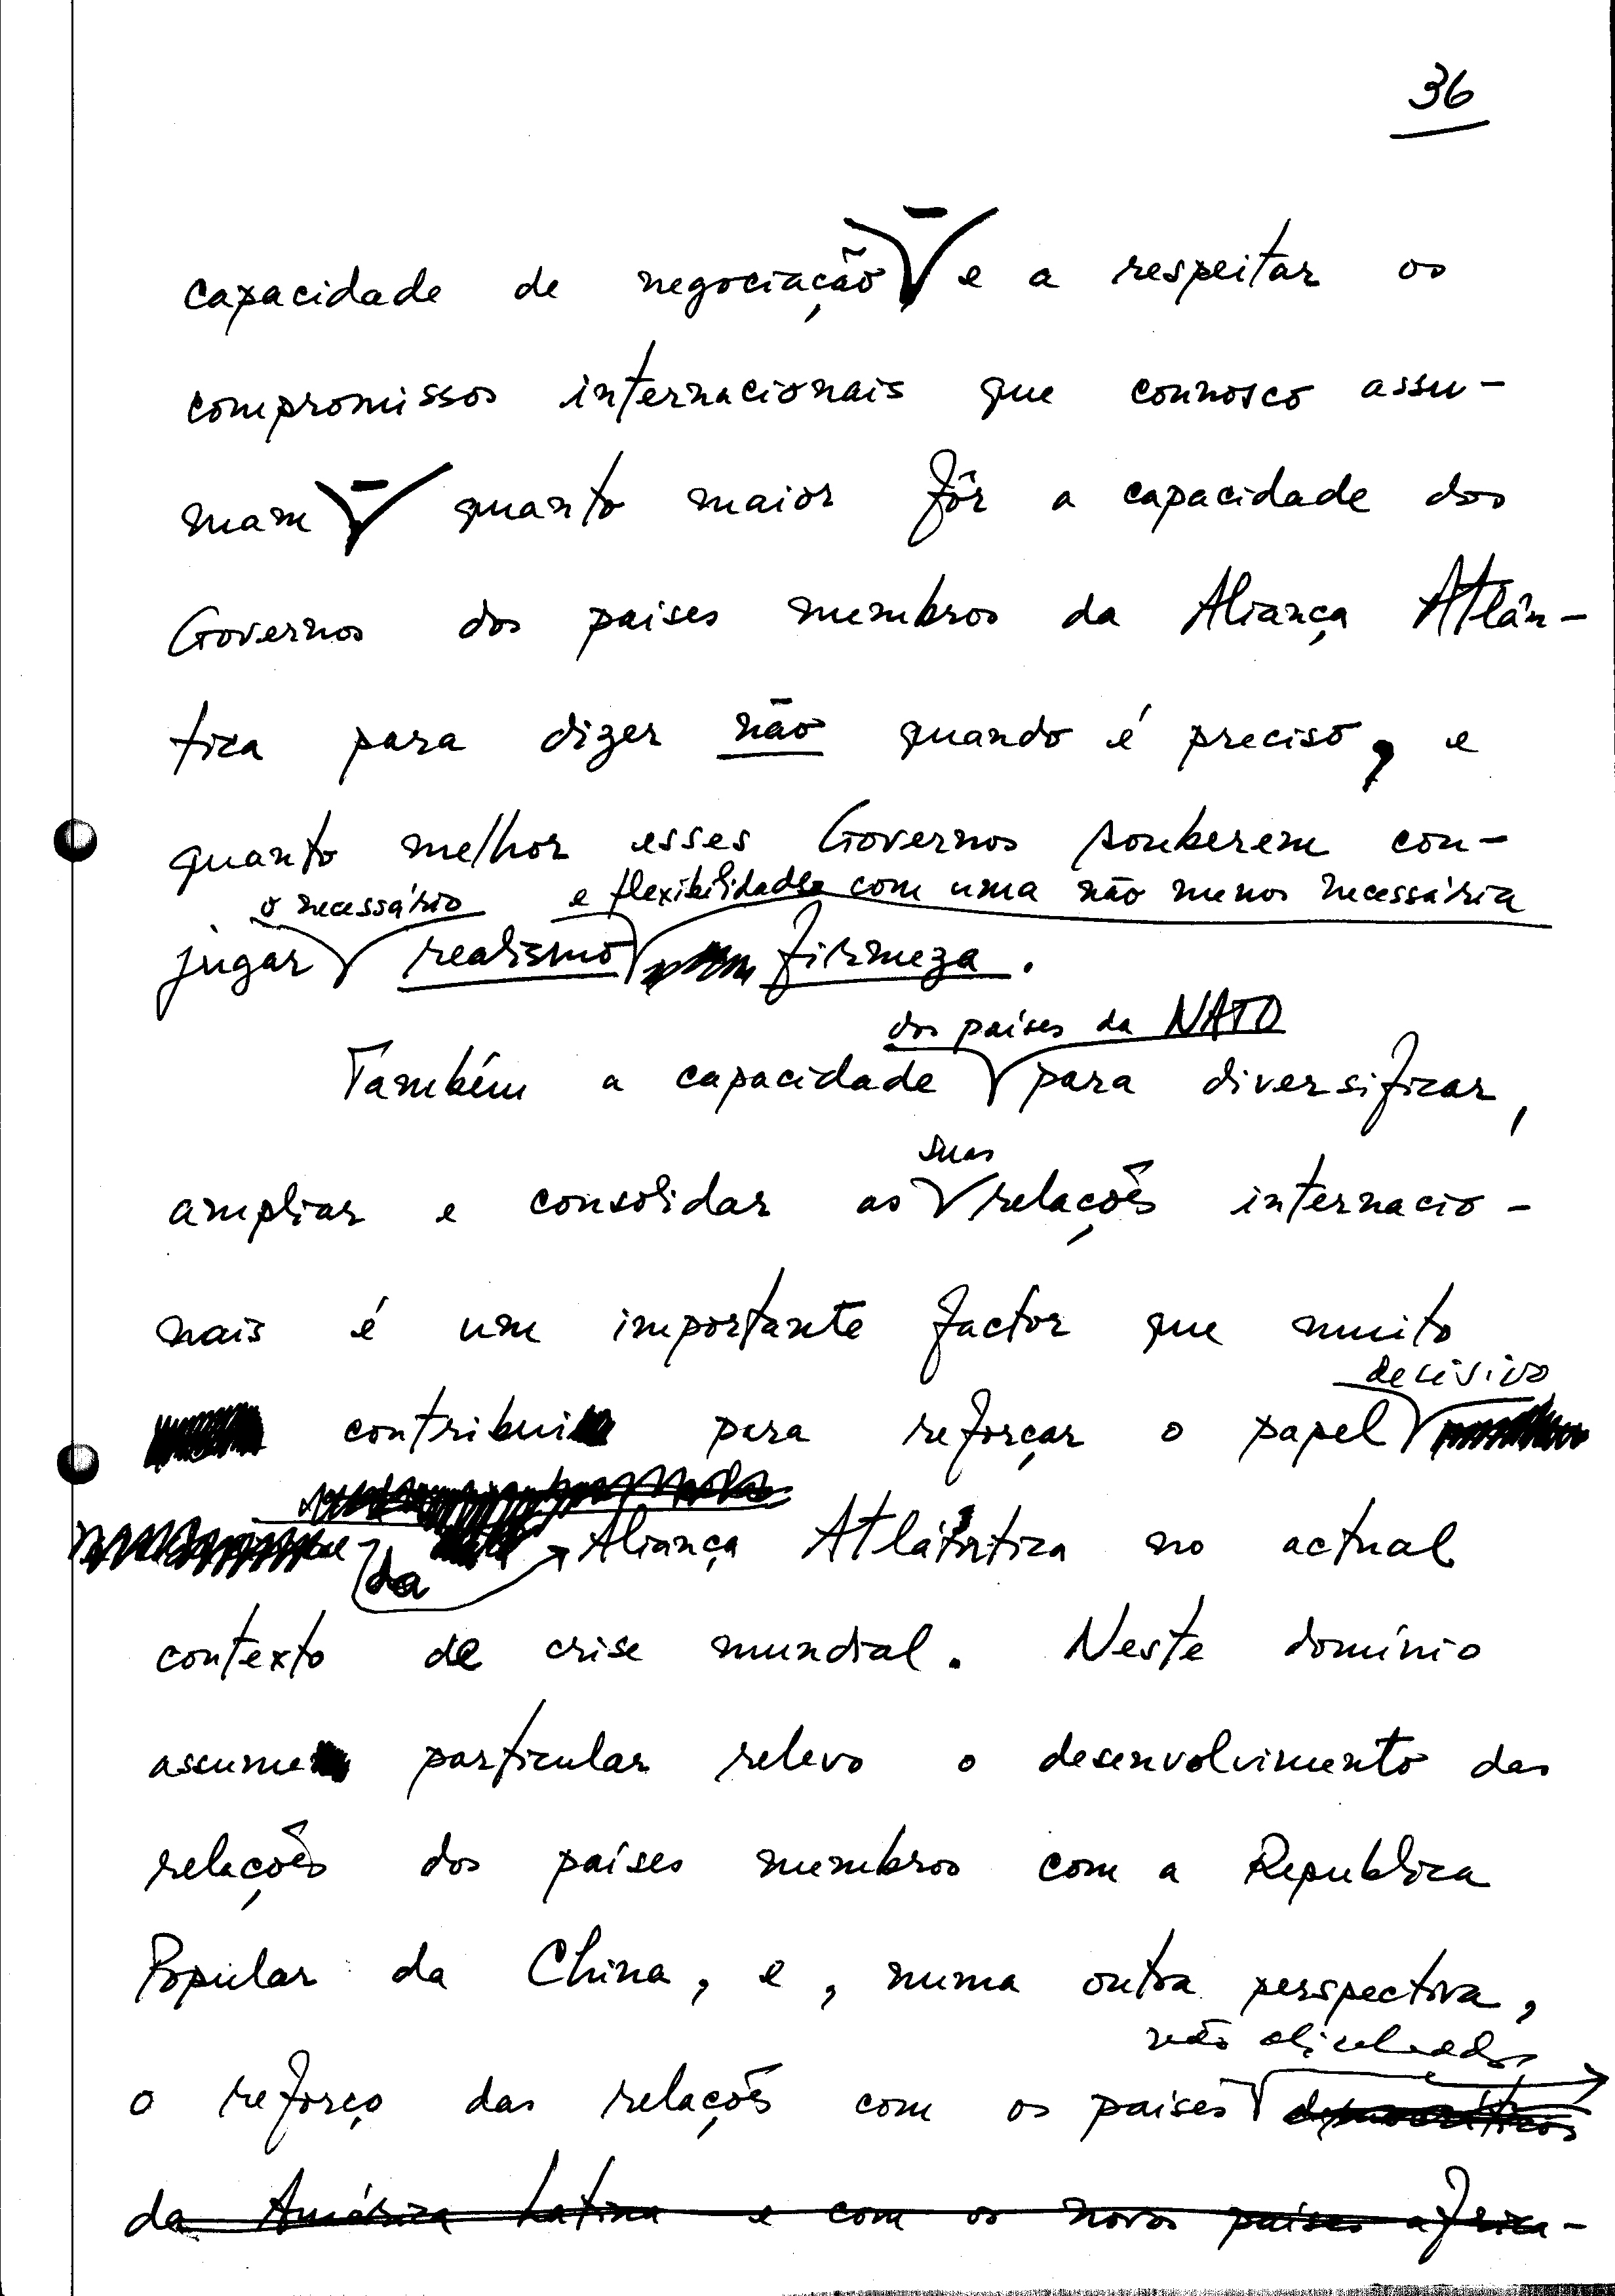 36
capacidade de negociação – e a respeitar os
compromissos internacionais que connosco assu-
mam – quanto maior fôr a capacidade dos
Governos dos países membros da Aliança Atlân-
tica para dizer não quando é preciso, e
quanto melhor esses Governos souberem con-
o necessário e flexibilidade com uma não menos necessária
jugar realismo firmeza.
dos países da NATO
Também a capacidade para diversificar,
suas
ampliar e consolidar as relações internacio-
nais é um importante factor que muito
decisivo
contribui para reforçar o papel
da Aliança Atlântica no actual
contexto de crise mundial. Neste domínio
assume particular relevo o desenvolvimento das
relações dos países membros com a Republica
Popular da China, e, numa outra perspectiva,
não alinhados
o reforço das relações com os países democráticos
da América Latina e com os novos países africa-